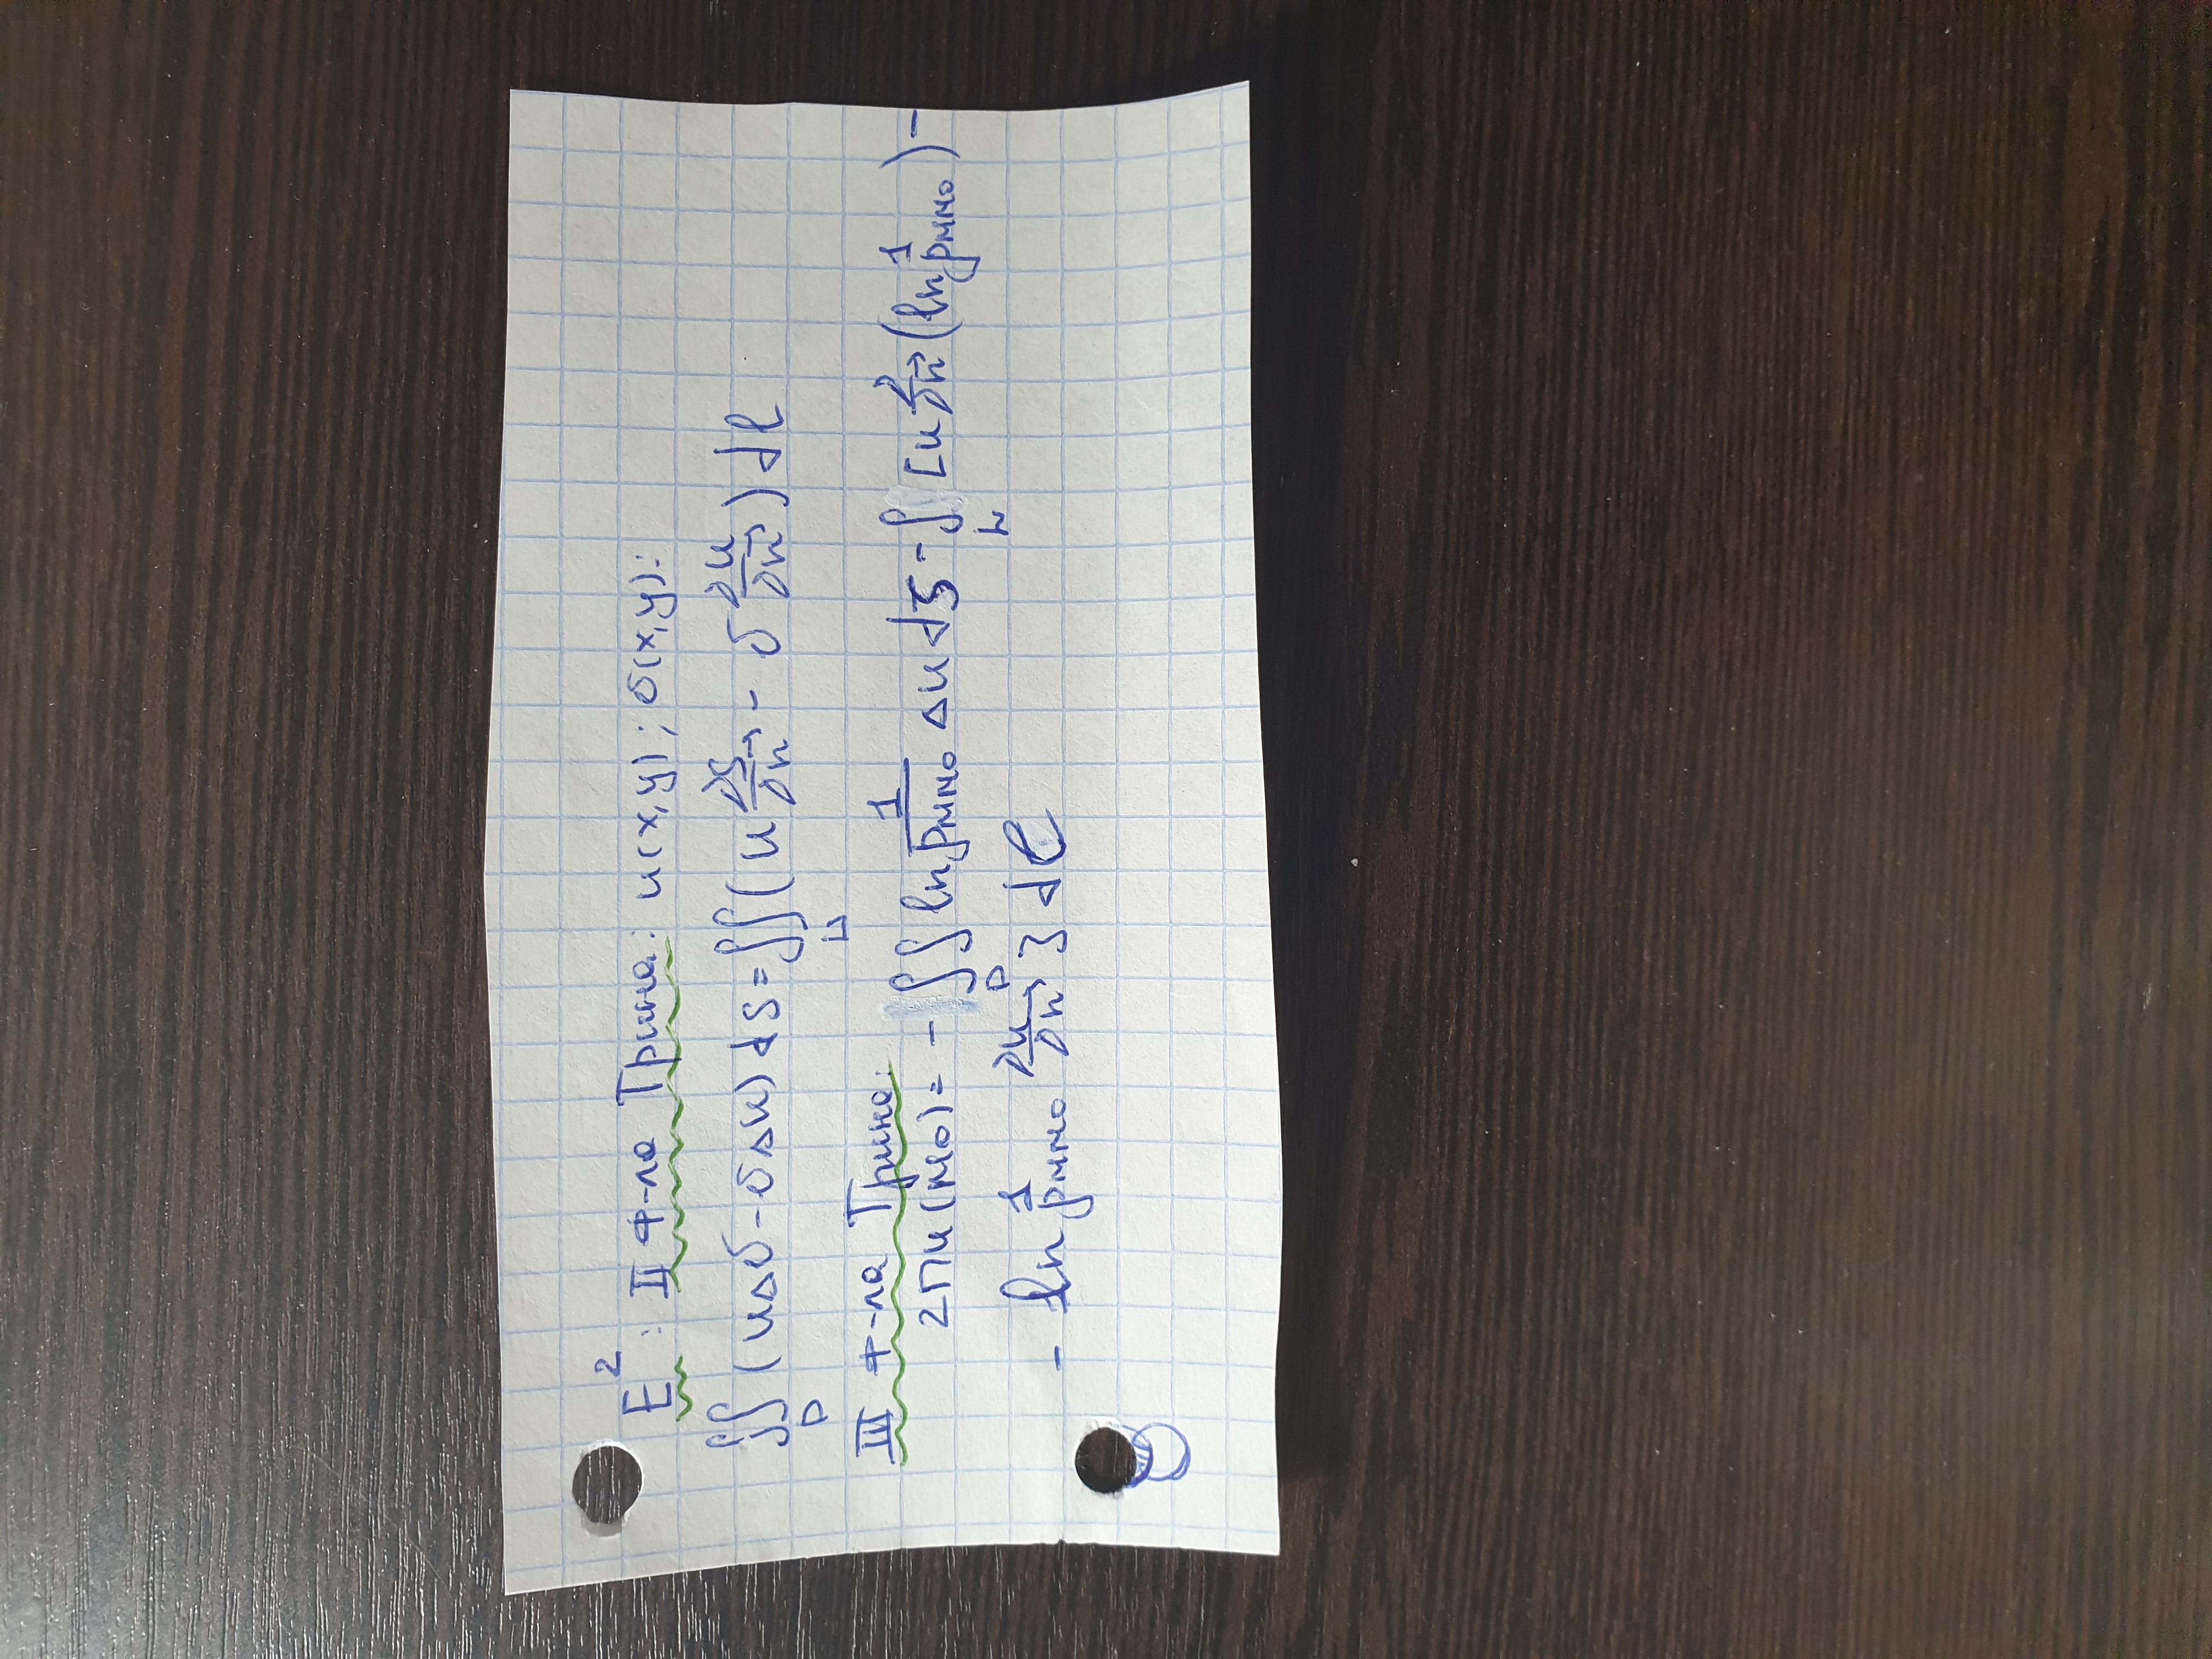 E²: II ф-ла Грина: u(x,y); σ(x,y):
∬_D (uΔσ - σΔu) dS = ∬_L (u ∂σ/∂n⃗ - σ ∂u/∂n⃗) dl
III ф-ла Грина:
2πu(M₀) = - ∬_D ln 1/ρMM₀ Δu dS - ∫_L [u ∂/∂n⃗ (ln 1/ρMM₀) -
- ln 1/ρMM₀ ∂u/∂n⃗] dl